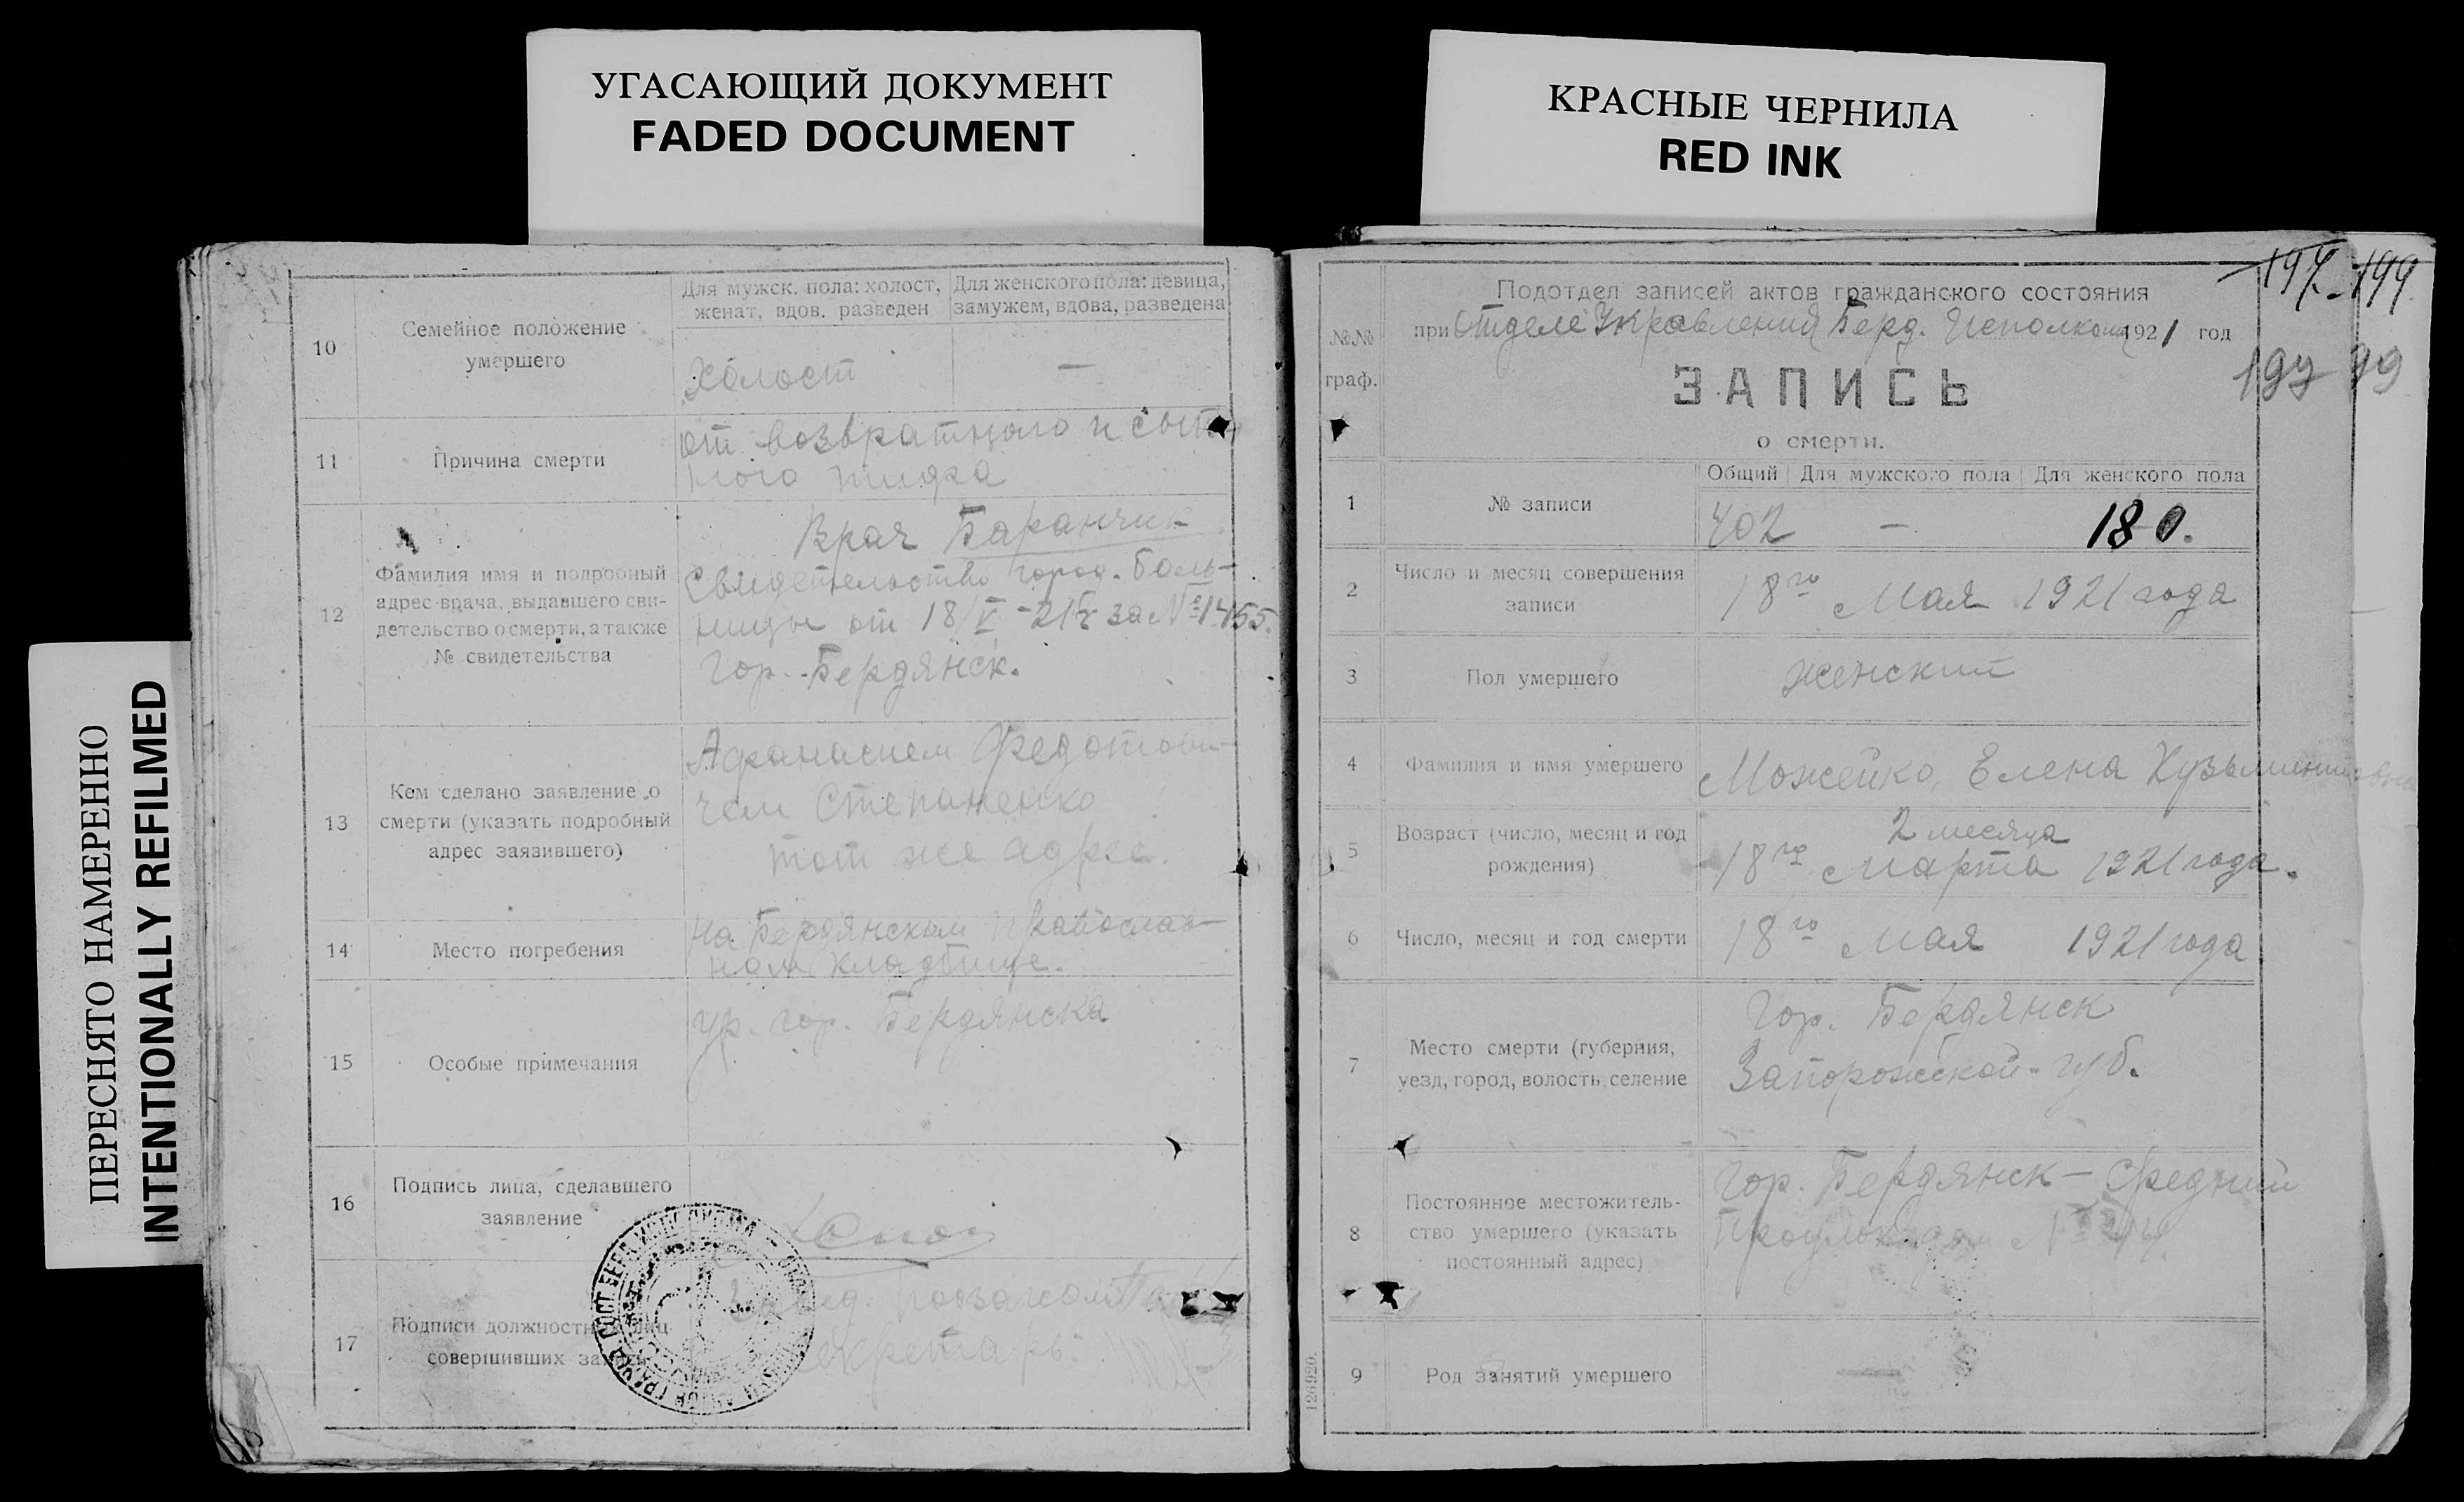 УГАСАЮЩИЙ ДОКУМЕНТ
FADED DOCUMENT
КРАСНЫЕ ЧЕРНИЛА
RED INK
ПЕРЕСНЯТО НАМЕРЕННО
INTENTIONALLY REFILMED
10
Семейное положение
умершего
Для мужск. пола: холост,
женат, вдов. разведен
Для женского пола: девица,
замужем, вдова, разведена
Холост
—
11
Причина смерти
от возвратного и сып-
ного тифа
12
Фамилия имя и подробный
адрес врача, выдавшего сви-
детельство о смерти, а также
№ свидетельства
Врач Баранчик
Свидетельство город. боль-
ницы от 18/V-21г за №1455.
Гор. Бердянск.
13
Кем сделано заявление о
смерти (указать подробный
адрес заявившего)
Афанасием Федотови-
чем Степаненко
тот же адрес.
14
Место погребения
на Бердянском православ-
ном кладбище.
15
Особые примечания
гр. гор. Бердянска
16
Подпись лица, сделавшего
заявление
17
Подписи должностных лиц
совершивших запись
Секретарь
№№
граф.
Подотдел записей актов гражданского состояния
при Отделе Управления Берд. Исполкома 1921 год
ЗАПИСЬ
о смерти.
197 199
199 99
1
№ записи
Общий
Для мужского пола
Для женского пола
402
—
180.
2
Число и месяц совершения
записи
18го Мая 1921 года
3
Пол умершего
женский
4
Фамилия и имя умершего
Можейко, Елена
5
Возраст (число, месяц и год
рождения)
2 месяца
18го Марта 1921 года.
6
Число, месяц и год смерти
18го Мая 1921 года
7
Место смерти (губерния,
уезд, город, волость, селение
Гор. Бердянск
Запорожской губ.
8
Постоянное местожитель-
ство умершего (указать
постоянный адрес)
Гор. Бердянск — Средний
9
Род занятий умершего
—
126920.